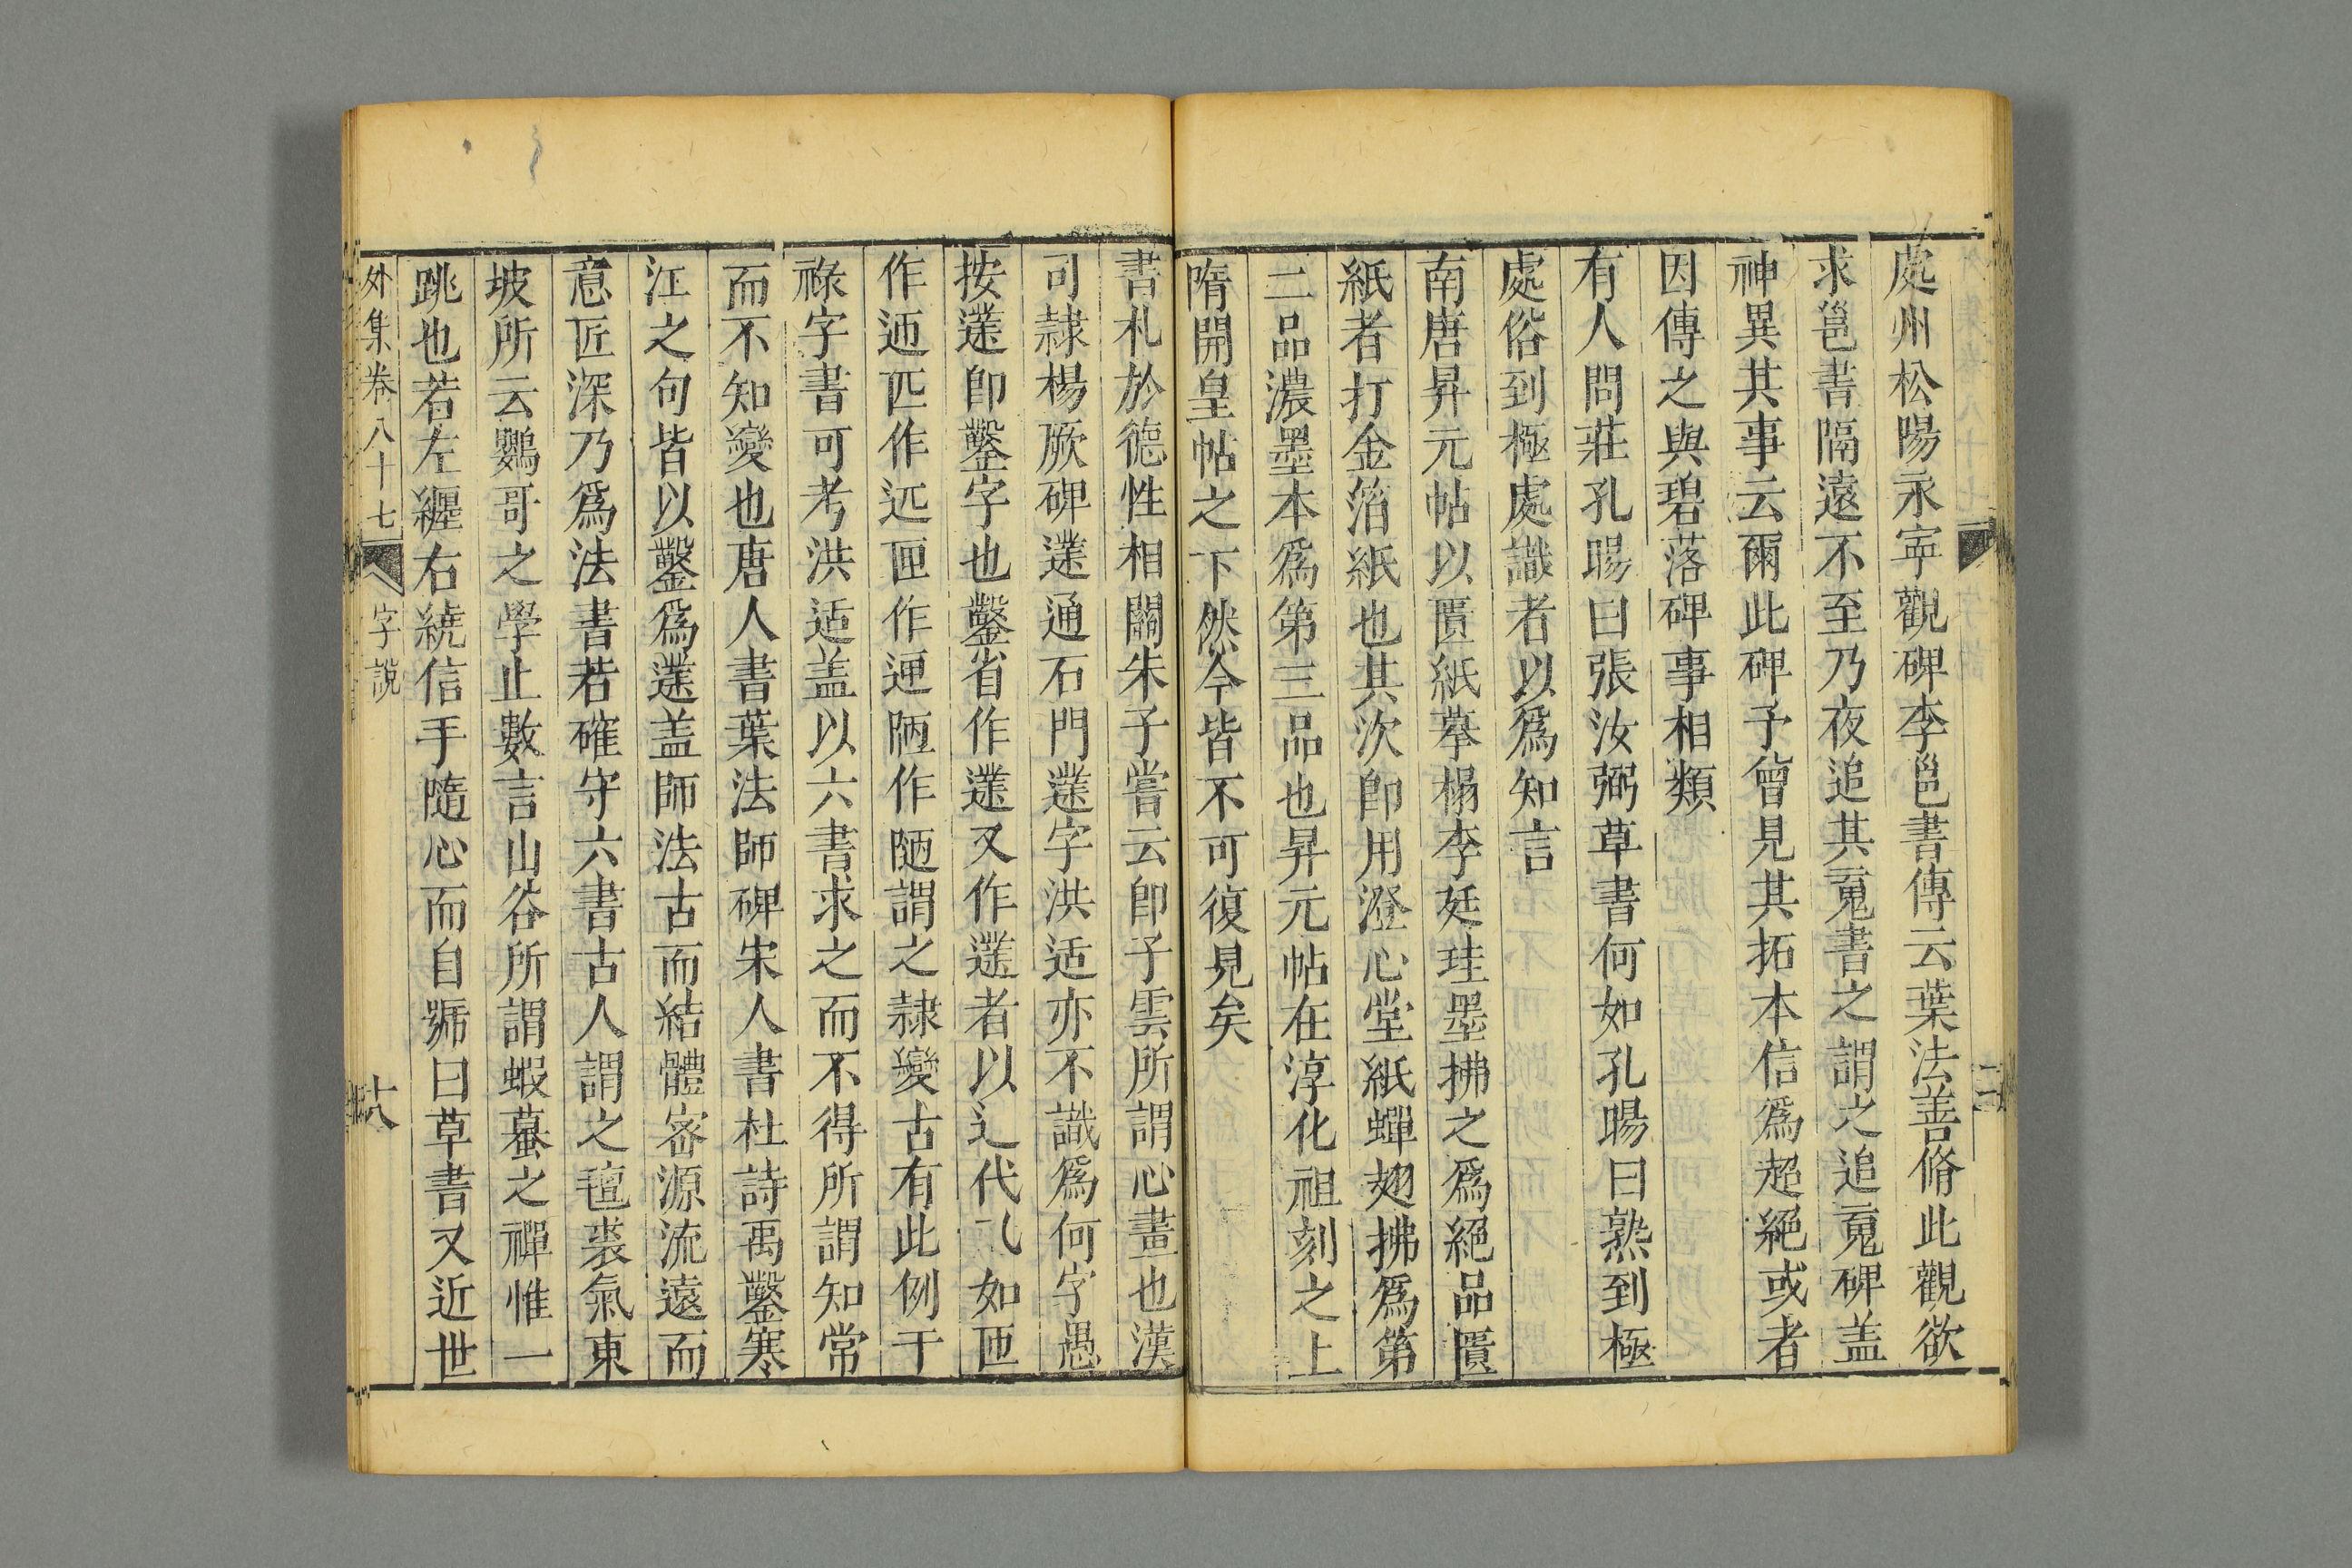 處州松陽永寧觀碑李邕書傳云葉法善脩此觀欲
求邕書隔遠不至乃夜追其䰟書之謂之追䰟碑盖
神異其事云爾此碑予曾見其拓本信爲超絕或者
因傳之與碧落碑事相類
有人問莊孔暘曰張汝弼草書何如孔暘曰熟到極
處俗到極處識者以爲知言
南唐昇元帖以匱紙摹榻李廷珪墨拂之爲絕品匱
紙者打金箔紙也其次卽用澄心堂紙蟬翅拂爲第
二品濃墨本爲第三品也昇元帖在淳化祖刻之上
隋開皇帖之下然今皆不可復見矣
書札於德性相關朱子嘗云卽子雲所謂心畫也漢
司隷楊厥碑䥣通石門䥣字洪适亦不識爲何字愚
按䥣卽鑿字也鑿省作䥣又作䥣者以辶代乀如匝
作迊匹作迃匣作𨓇陋作陋謂之隷變古有此例干
祿字書可考洪适盖以六書求之而不得所謂知常
而不知變也唐人書葉法師碑宋人書杜詩禹鑿寒
江之句皆以鑿爲䥣盖師法古而結體密源流遠而
意匠深乃爲法書若確守六書古人謂之氊裘氣東
坡所云鸚哥之學止數言山谷所謂蝦蟇之禪惟一
跳也若左纏右繞信手隨心而自號曰草書又近世
外集卷八十七
字說
十八